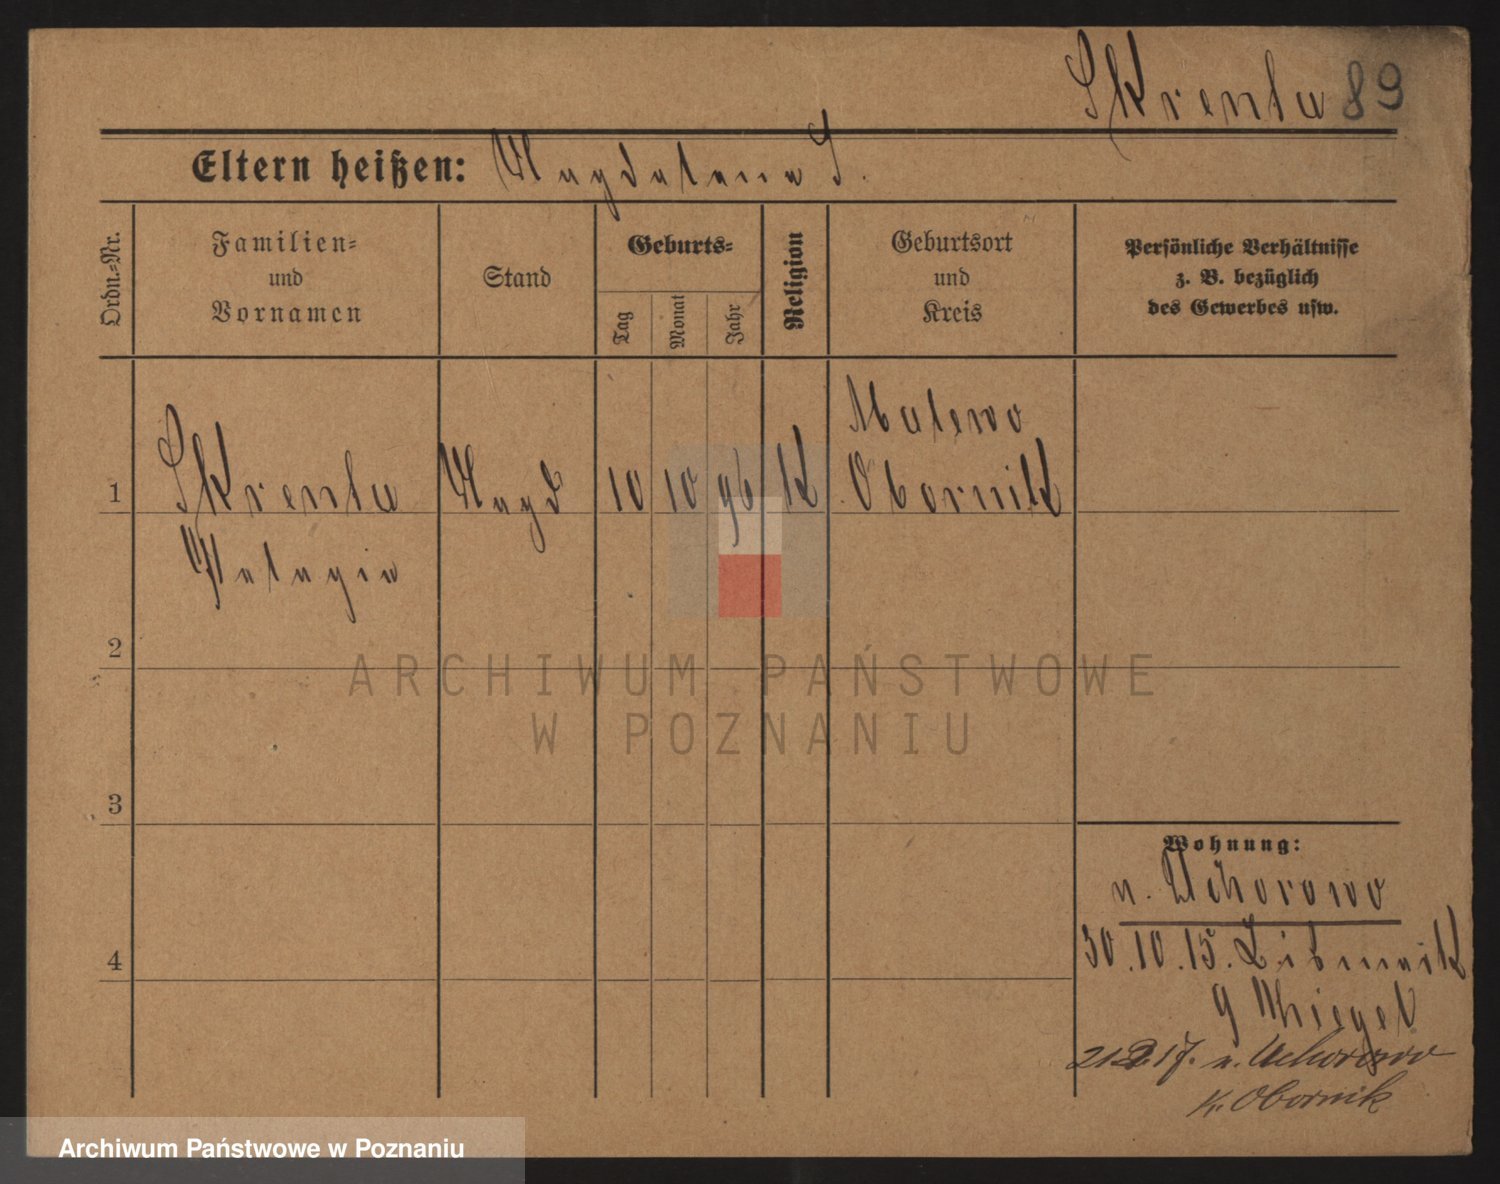 Skrenta 89
Eltern heißen: Magdalena S.
Ordn.-Nr.
Familien- und Vornamen
Stand
Geburts-
Tag
Monat
Jahr
Religion
Geburtsort und Kreis
Persönliche Verhältnisse
z. B. bezüglich
des Gewerbes usw.
1 Skrenta Magd 10 10 96 K Obornik
Pelagia
2
3
4
Wohnung:
n. Uchorowo
30.10.15.
21.2.17. n. Uchorowo
Kr. Obornik
ARCHIWUM PAŃSTWOWE
W POZNANIU
Archiwum Państwowe w Poznaniu